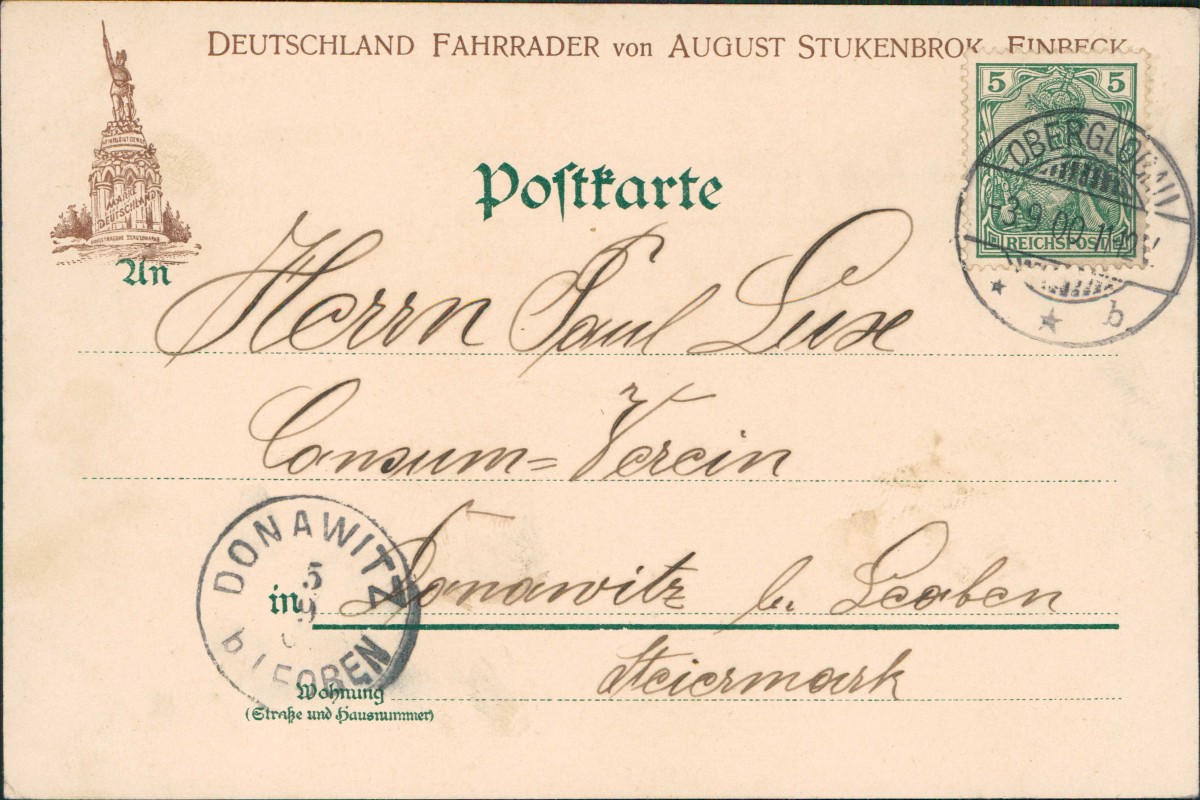 DEUTSCHLAND FAHRRADER von AUGUST STUKENBROK, EINBECK
MARKE
DEUTSCHLAND
5 5
REICHSPOST
OBERGLOGAU
3.9.00.11-12V
b
Postkarte
An
Herrn Paul Luxe
Consum=Verein
in Donawitz b. Leoben
DONAWITZ
5
9
b/LEOBEN
Steiermark
Wohnung
(Straße und Hausnummer)